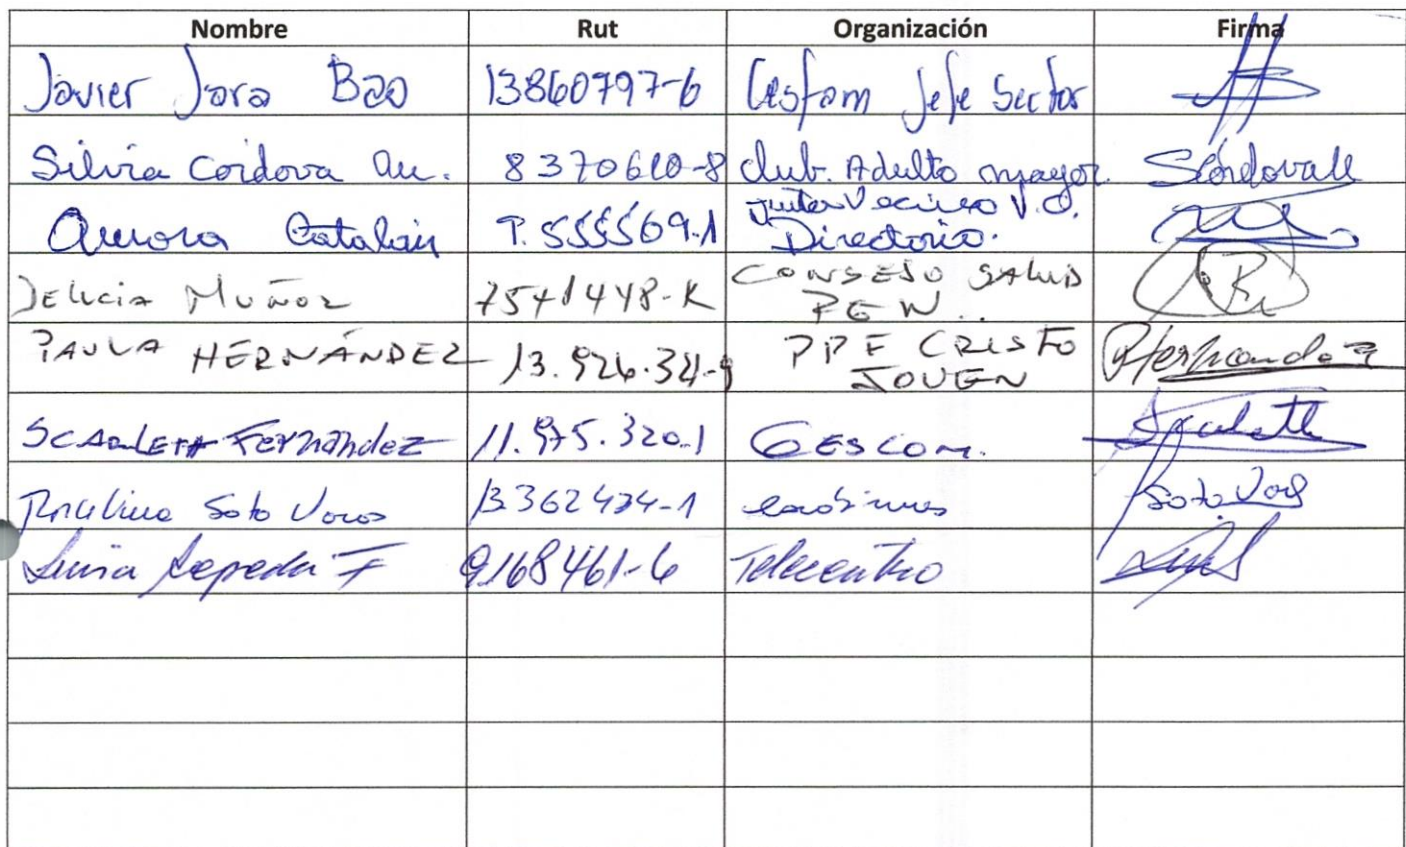 Nombre Rut Organización Firma
Javier Jara Bao 13860797-6 Cesfam Jefe Sector
Silvia Cordova Au. 8370610-8 Club. Adulto mayor. SCórdovaU
Aurora Catalán 7.555569.1 Junta Vecinos V.O.
Directorio.
Delicia MUÑOZ 7541448-K CONSEJO SALUD
PAULA HERNÁNDEZ PPF CRISTO PHernandez
JOVEN
SCARLETH FERNÁNDEZ 11.975.320.1 GESCOM. Scarleth
Soto 13362434-1 Soto
Sepeda F 9168461-6 Telecentro